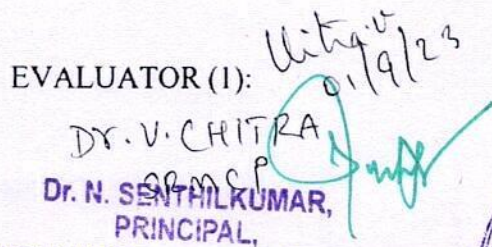 Chitra.V
EVALUATOR (1): 01/9/23
Dr. V. CHITRA
SRMCP
Dr. N. SENTHILKUMAR,
PRINCIPAL,